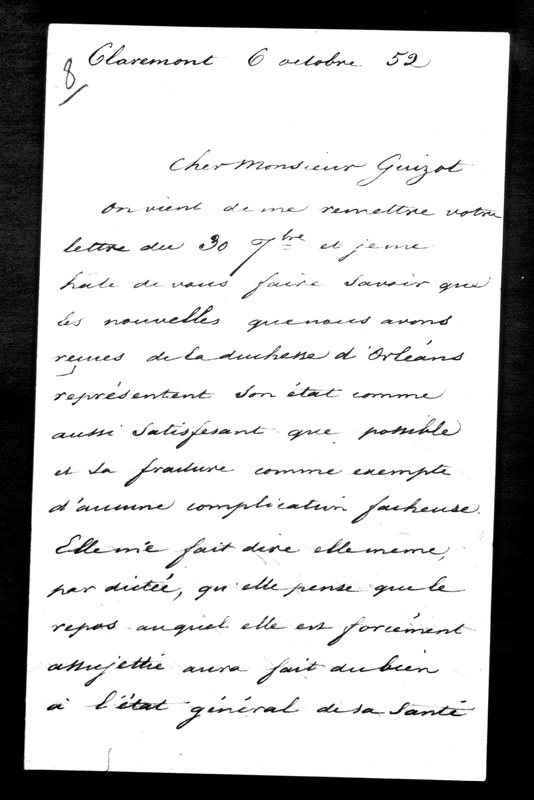 8
Claremont 6 octobre 52
Cher Monsieur Guizot
On vient de me remettre votre
lettre du 30 7bre et je me
hate de vous faire savoir que
les nouvelles que nous avons
reçues de la duchesse d'Orléans
représentent son état comme
aussi satisfesant que possible
et sa fracture comme exempte
d'aucune complication facheuse.
Elle m'a fait dire elle meme,
par dictée, qu'elle pense que le
repos auquel elle est forcément
assujettie aura fait du bien
à l'état général de sa santé